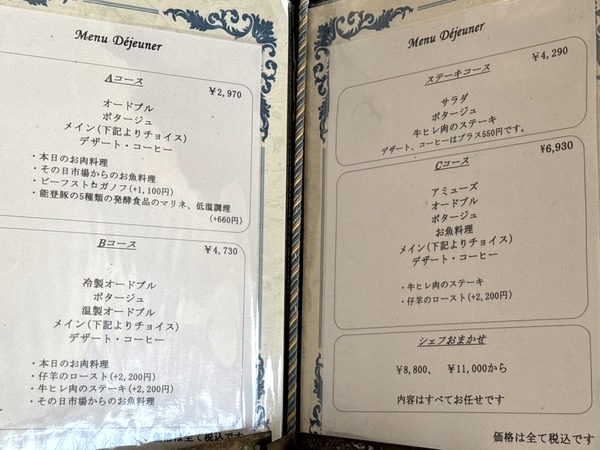 Menu Déjeuner
Aコース
¥2,970
オードブル
ポタージュ
メイン(下記よりチョイス)
デザート・コーヒー
・本日のお肉料理
・その日市場からのお魚料理
・ビーフストロガノフ(+1,100円)
・能登豚の5種類の発酵食品のマリネ、低温調理
(+660円)
Bコース
¥4,730
冷製オードブル
ポタージュ
温製オードブル
メイン(下記よりチョイス)
デザート・コーヒー
・本日のお肉料理
・仔羊のロースト(+2,200円)
・牛ヒレ肉のステーキ(+2,200円)
・その日市場からのお魚料理
価格は全て税込です
Menu Déjeuner
ステーキコース
¥4,290
サラダ
ポタージュ
牛ヒレ肉のステーキ
デザート、コーヒーはプラス550円です。
Cコース
¥6,930
アミューズ
オードブル
ポタージュ
お魚料理
メイン(下記よりチョイス)
デザート・コーヒー
・牛ヒレ肉のステーキ
・仔羊のロースト(+2,200円)
シェフおまかせ
¥8,800、 ¥11,000から
内容はすべてお任せです
価格は全て税込です